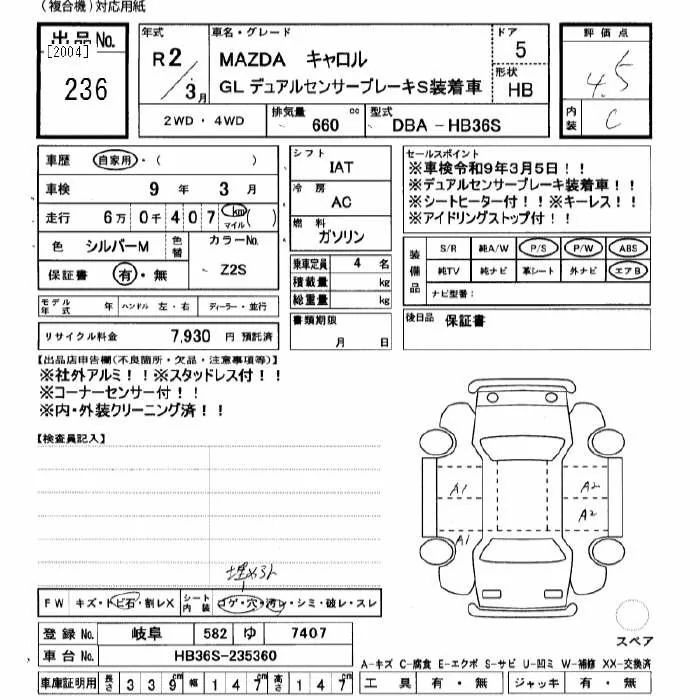 (複合機)対応用紙
出品No.
[2004]
236
年式
R2/3月
車名・グレード
MAZDA キャロル
GL デュアルセンサーブレーキS装着車
ドア
5
形状
HB
2WD・4WD
排気量
660 cc
型式
DBA-HB36S
評価点
4.5
内装
C
車歴 自家用・( )
車検 9年 3月
走行 6万 0千 4 0 7 km マイル ( )
色 シルバーM 色替 カラーNo.
保証書 有・無 Z2S
モデル年式 年 ハンドル 左・右 ディーラー・並行
リサイクル料金 7,930 円 預託済
シフト
IAT
冷房
AC
燃料
ガソリン
乗車定員 4 名
積載量 kg
総重量 kg
書類期限
月 日
セールスポイント
※車検令和9年3月5日!!
※デュアルセンサーブレーキ装着車!!
※シートヒーター付!!※キーレス!!
※アイドリングストップ付!!
装備品
S/R 純A/W P/S P/W ABS
純TV 純ナビ 革シート 外ナビ エアB
ナビ型番:
後日品 保証書
【出品店申告欄(不良箇所・欠品・注意事項等)】
※社外アルミ!!※スタッドレス付!!
※コーナーセンサー付!!
※内・外装クリーニング済!!
【検査員記入】
A1
A2
A2
A1
FW キズ・トビ石・割レX シート内装 コゲ・穴・汚レ・シミ・破レ・スレ
登録No. 岐阜 582 ゆ 7407
車台No. HB36S-235360
車庫証明用 長さ 339cm 幅 147cm 高さ 147cm
スペア
A-キズ C-腐食 E-エクボ S-サビ U-凹ミ W-補修 XX-交換済
工具 有・無 ジャッキ 有・無